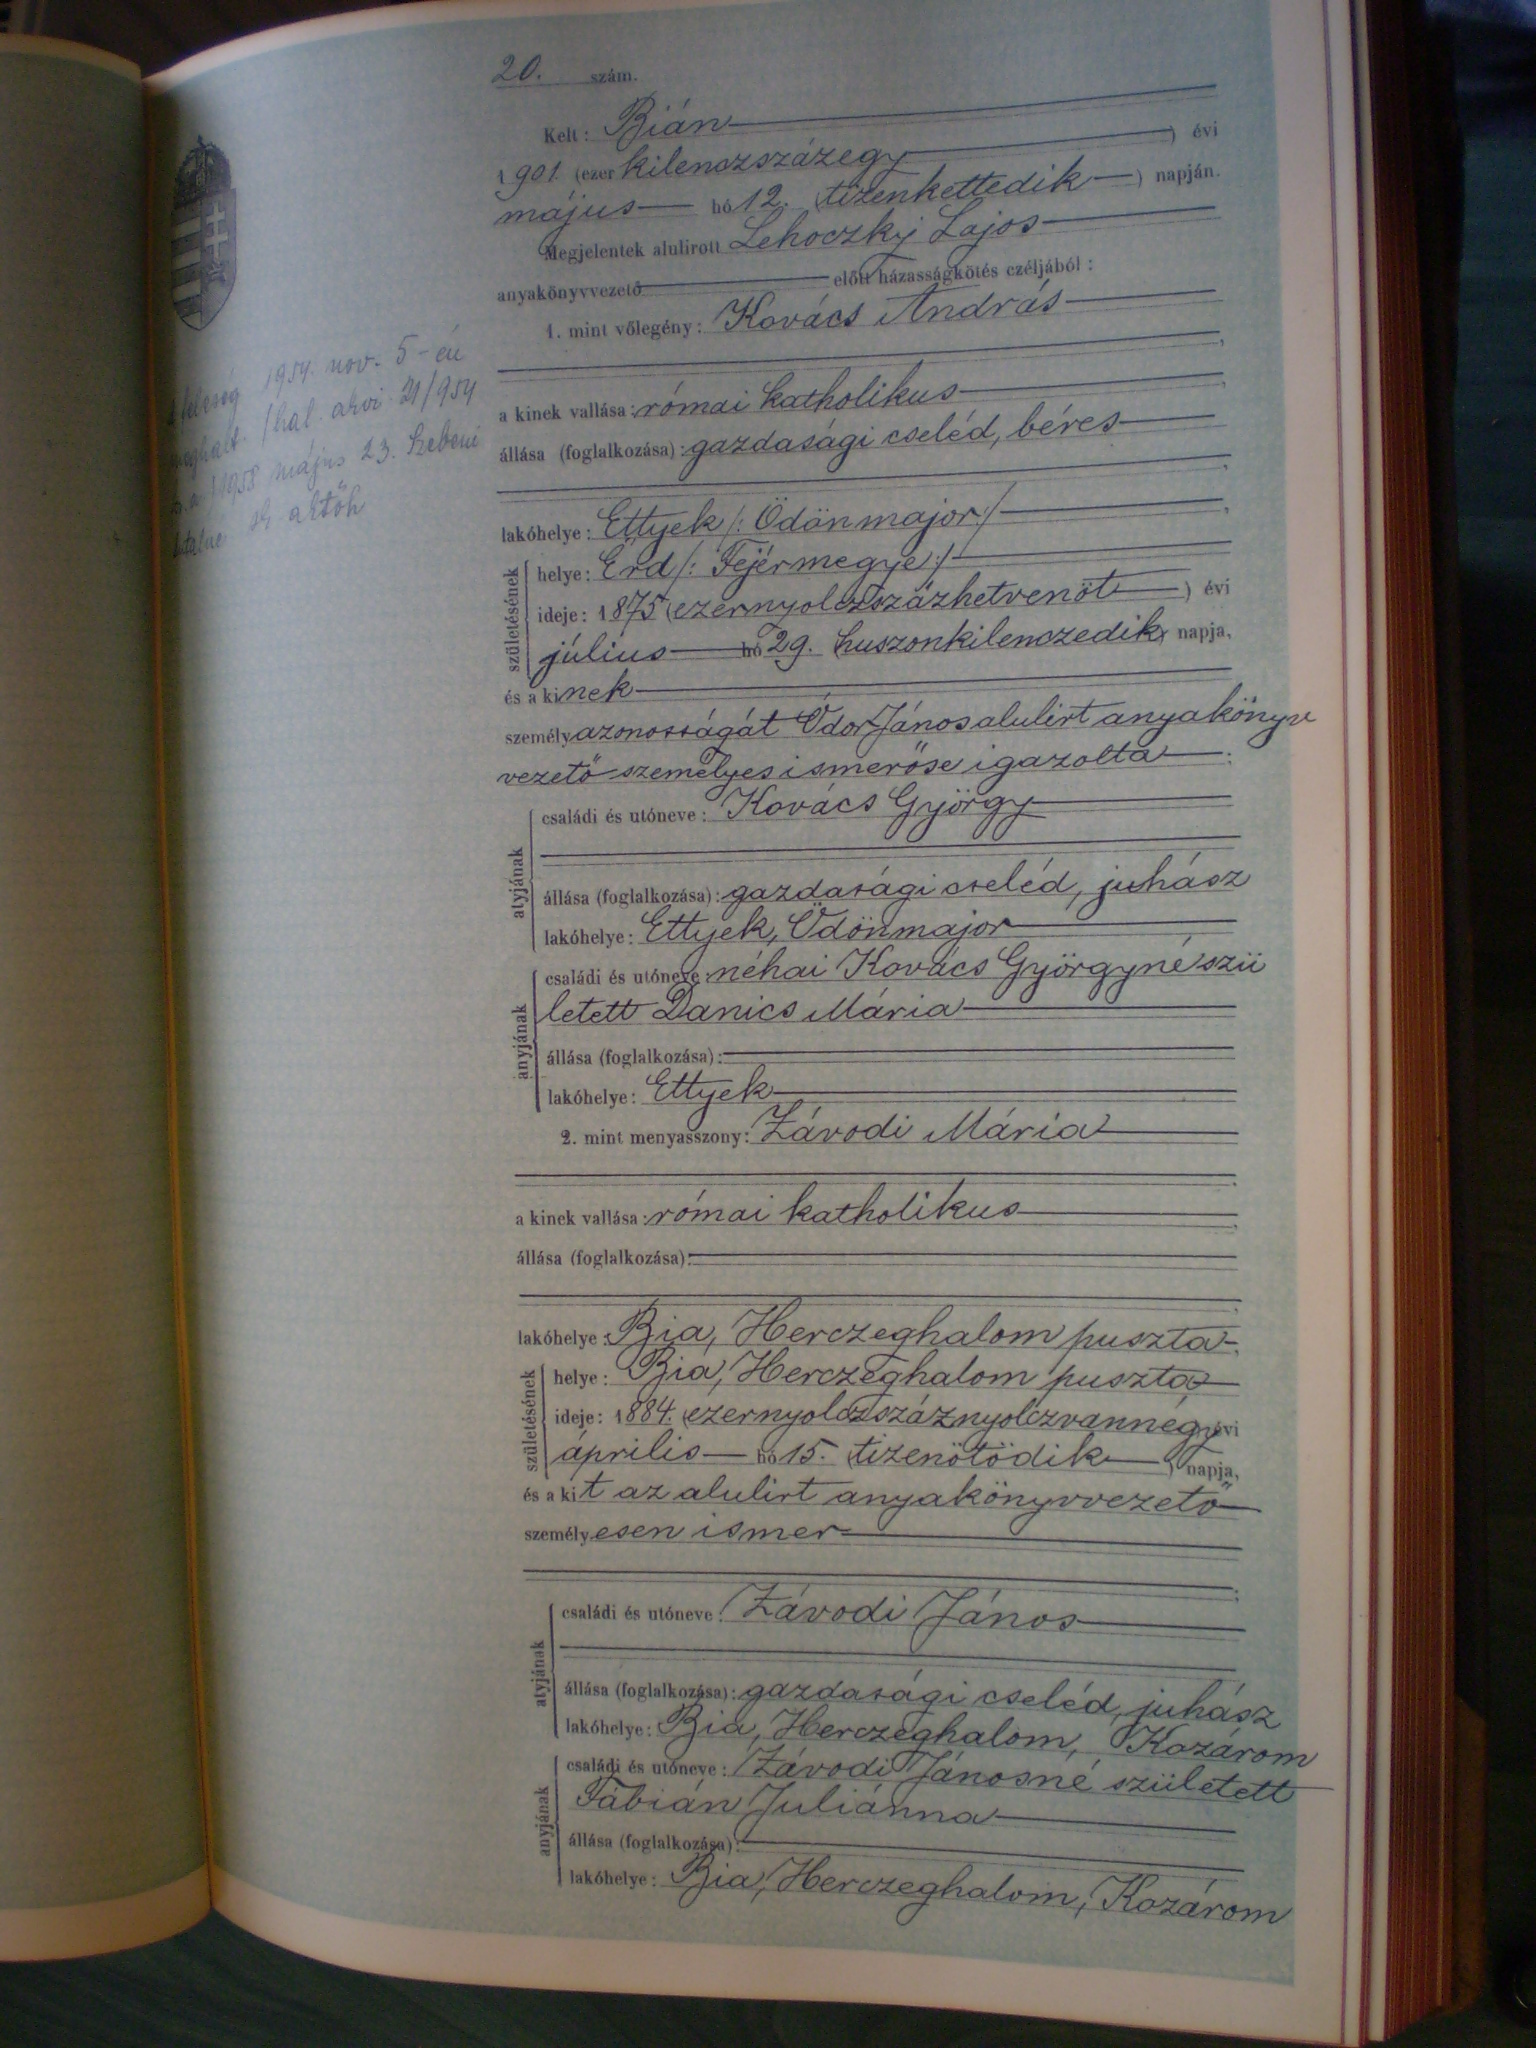 20. szám.
Kelt: Bián
1901 (ezer kilenczszázegy) évi
május hó 12. (tizenkettedik) napján.
Megjelentek alulirott Lehoczky Lajos
anyakönyvvezető előtt házasságkötés czéljából:
1. mint vőlegény: Kovács András
a kinek vallása: római katholikus
állása (foglalkozása): gazdasági cseléd, béres
lakóhelye: Ettyek /: Ödönmajor :/
születésének
helye: Érd /: Fejérmegye :/
ideje: 1875 (ezernyolczszázhetvenöt) évi
július hó 29. (huszonkilenczedik) napja,
és a kinek
személyazonosságát Ódor János alulirt anyakönyv
vezető személyes ismerőse igazolta
atyjának
családi és utóneve: Kovács György
állása (foglalkozása): gazdasági cseléd, juhász
lakóhelye: Ettyek, Ödönmajor
anyjának
családi és utóneve: néhai Kovács Györgyné szü
letett Danics Mária
állása (foglalkozása):
lakóhelye: Ettyek
2. mint menyasszony: Závodi Mária
a kinek vallása: római katholikus
állása (foglalkozása):
lakóhelye: Bia, Herczeghalom puszta
születésének
helye: Bia, Herczeghalom puszta
ideje: 1884. (ezernyolczszáznyolczvannégy) évi
április hó 15. (tizenötödik) napja,
és a kit az alulirt anyakönyvvezető
személyesen ismer
atyjának
családi és utóneve: Závodi János
állása (foglalkozása): gazdasági cseléd, juhász
lakóhelye: Bia, Herczeghalom, Kozárom
anyjának
családi és utóneve: Závodi Jánosné született
Fábián Juliánna
állása (foglalkozása):
lakóhelye: Bia, Herczeghalom, Kozárom
feleség 1954. nov. 5-én
meghalt. /hal. akvi 21/954
1958 május 23.